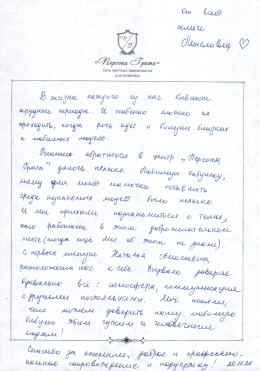 От всей
семьи
«Персона Грата»
сеть частных пансионатов
для пожилых
В жизни каждого из нас бывают
трудные периоды. И особенно сложно их
проходить, когда речь идет о болезни близких
и любимых людей.
Решение обратиться в центр „Персона
Грата" далось нелегко. Любимую бабушку,
маму для моего папочки оставлять
среди незнакомых людей было нелегко.
И мы приехали познакомиться с теми,
кто работает в этом доброжелательном
месте (тогда еще мы об этом не знали)
С первых минут Наталья Алексеевна
расположила нас к себе. Вызвало доверие
буквально всё: атмосфера, коммуникация
с другими постояльцами. Мы поняли,
что можем доверить нашу любимую
бабулю этим чутким и человечным
людям!
Спасибо за искреннее, доброе и профессио-
нальное сопровождение и поддержку!